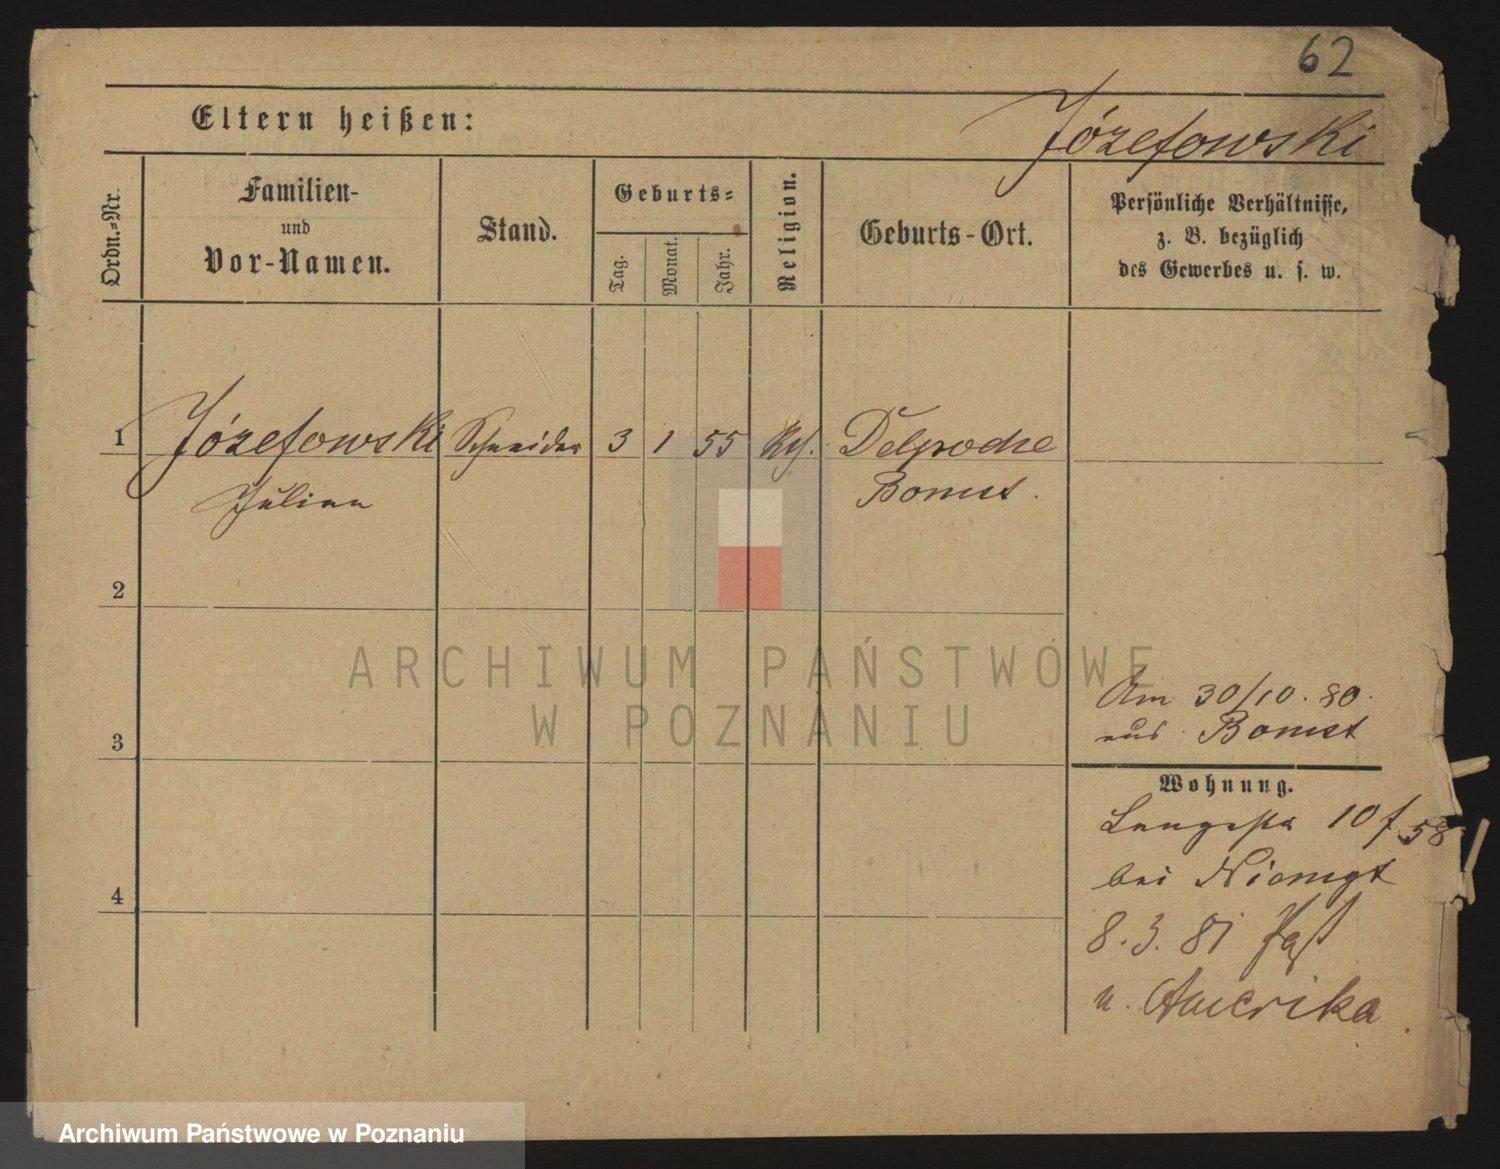 62
Eltern heißen:
Józefowski
Ordn.-Nr.
Familien-
und
Vor-Namen.
Stand.
Geburts-
Tag.
Monat.
Jahr.
Religion.
Geburts-Ort.
Persönliche Verhältnisse,
z. B. bezüglich
des Gewerbes u. s. w.
1 Józefowski Schneider 3 1 55
Julian Bomst.
2
ARCHIWUM PAŃSTWOWE
W POZNANIU
Am 30/10. 80.
aus Bomst
3
Wohnung.
10 58
bei
4
8. 3. 81 Paß
n. Amerika
Archiwum Państwowe w Poznaniu